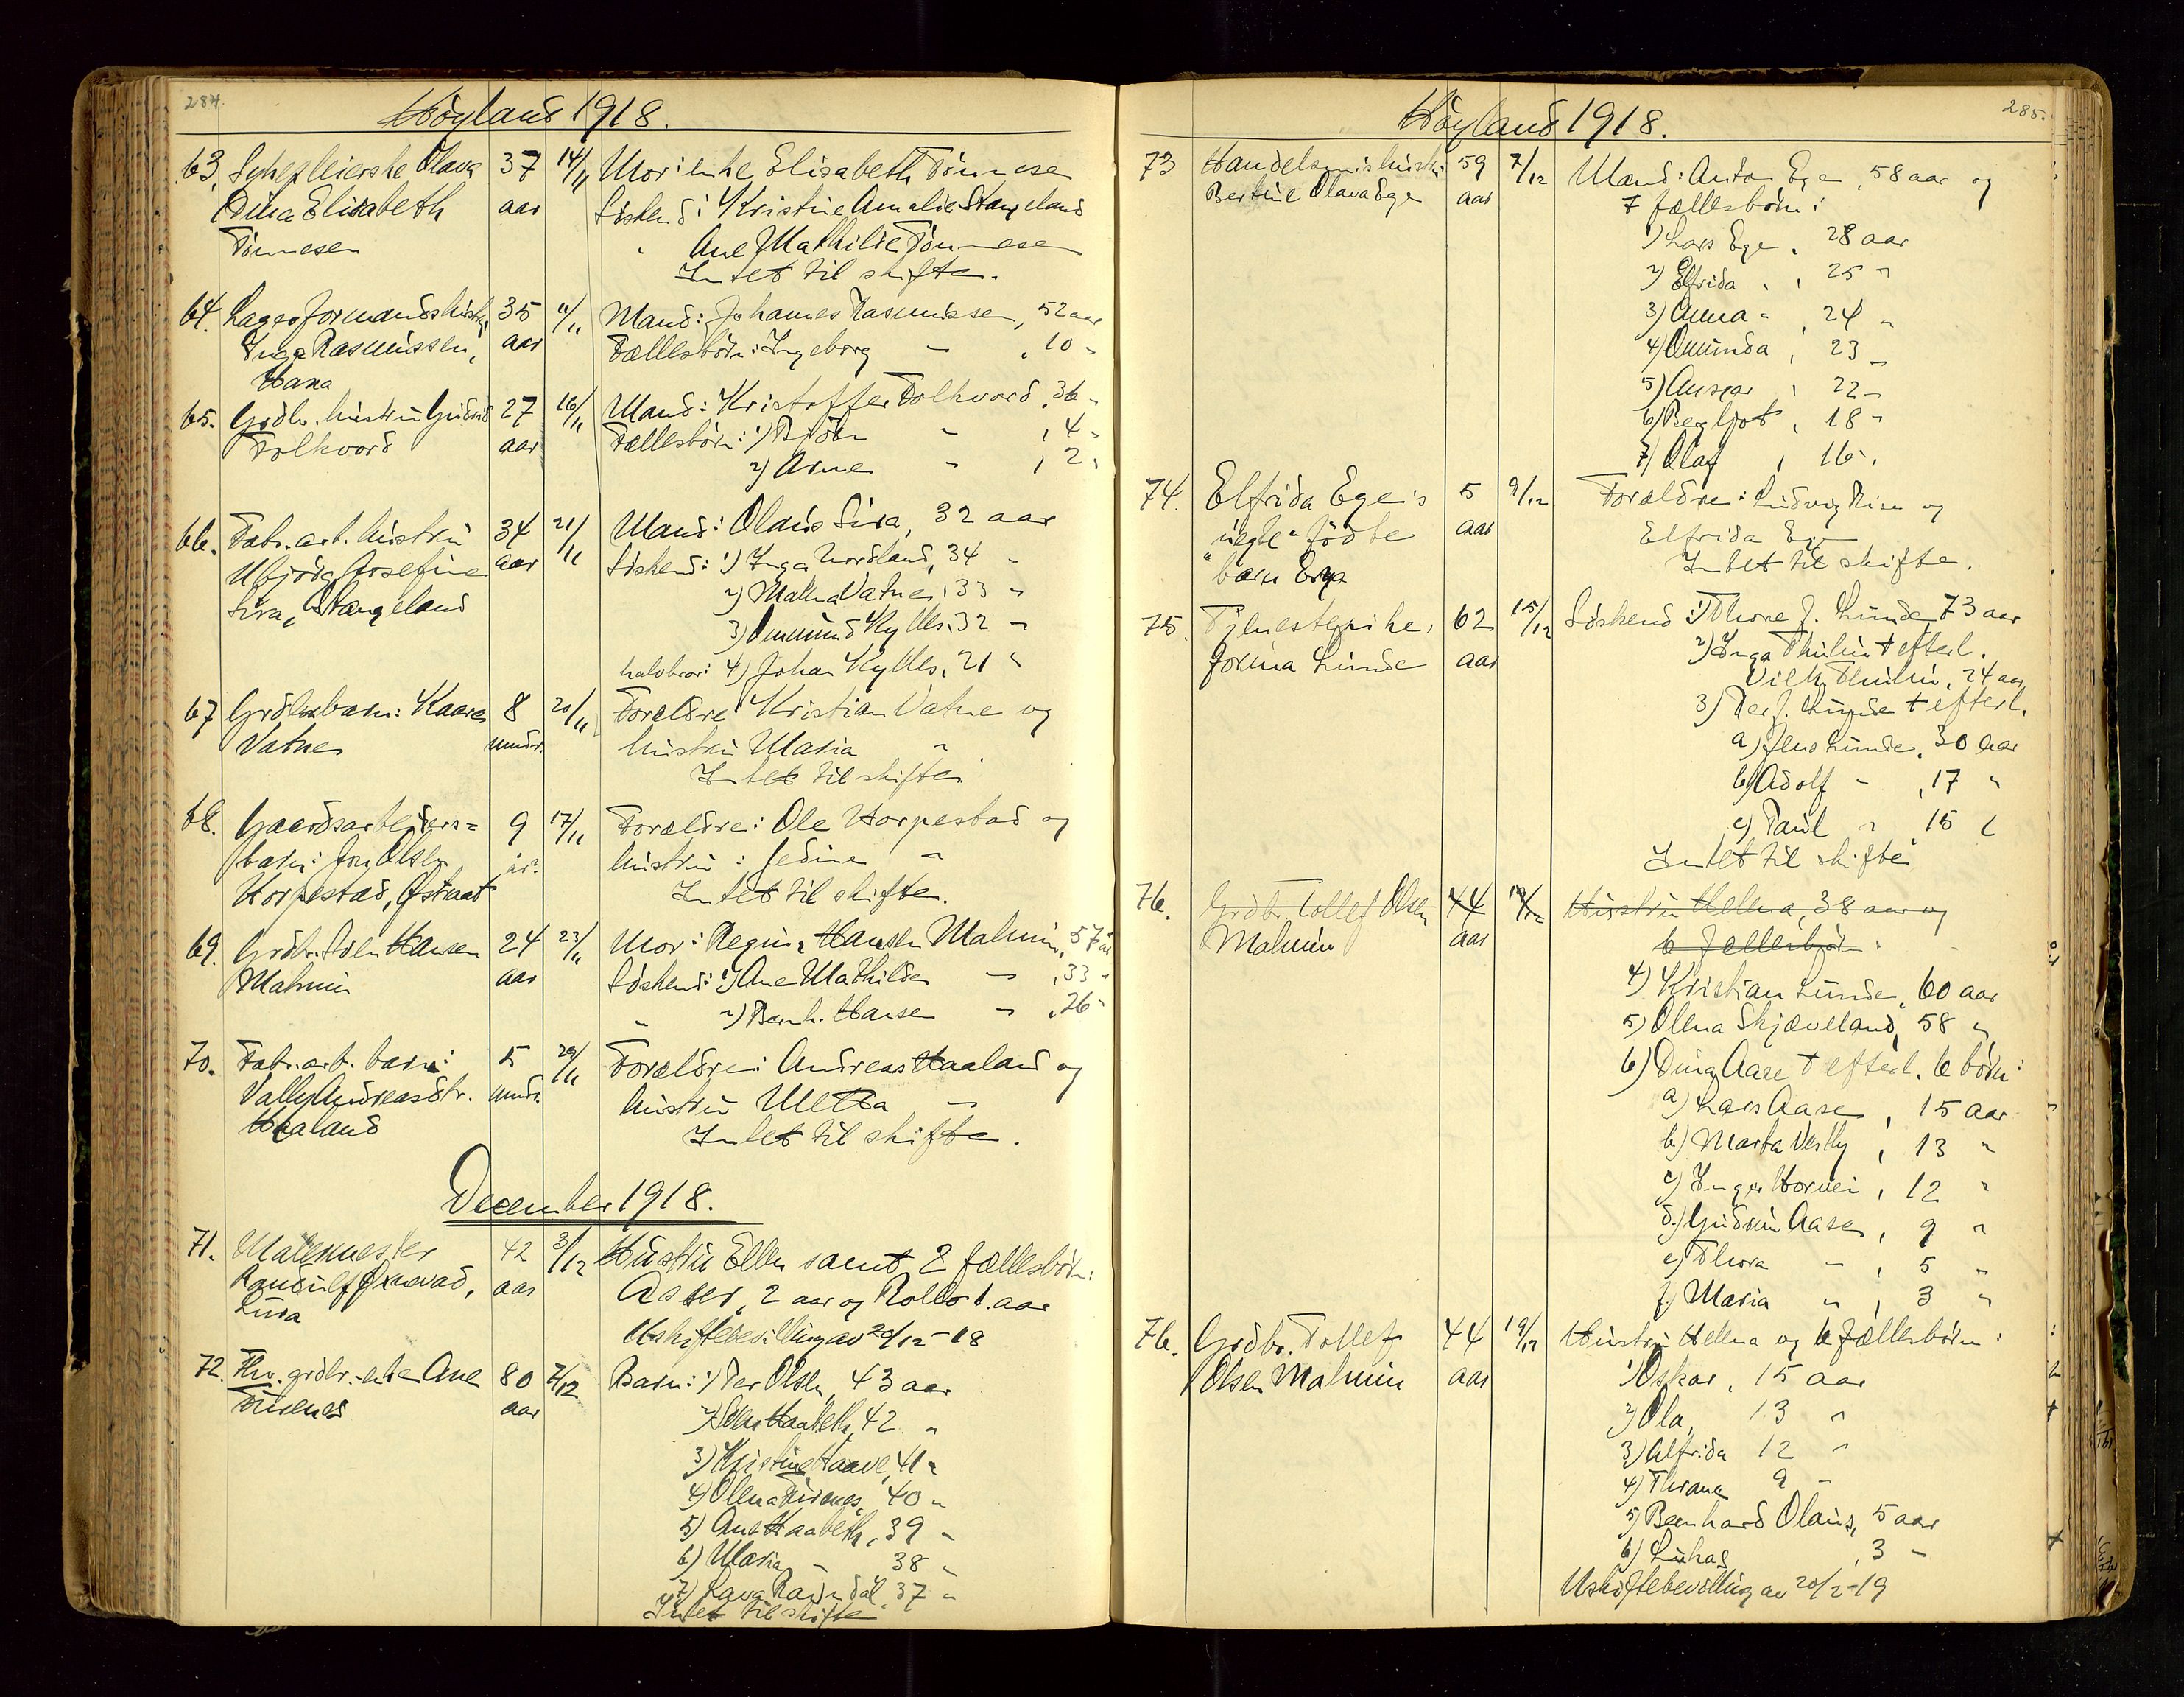 284.
Höyland 1918.
63. Sykepleierske Olava 37 14/11 Mor: enke Elisabeth Tönnesen
Dina Elisabeth aar Söskend: Kristine Amalie Stangeland
Tönnesen " Ane Mathilde Tönnesen
Intet til skifte.
64. Lagerformandshustru 35 11/11 Mand: Johannes Rasmussen, 52 aar
Inga Rasmussen, aar Fællesbörn: Ingeborg " , 10 "
Hana
65. Grdbr. hustru Gudrid 27 16/11 Mand: Kristoffer Folkvord, 36 "
Folkvord aar Fællesbörn: 1) Björn " , 4 "
2) Arne " , 2 "
66. Fabr. arb. hustru 34 21/11 Mand: Olaus Sira, 32 aar
Josefine aar Söskend: 1) Inga Nordland, 34 "
Sira, Stangeland 2) Malena Vatne, 33 "
3) Ommund Kylles, 32 "
halvbror: 4) Johan Kylles, 21 "
67 Grdbr.barn: Kaare 8 20/11 Forældre: Kristian Vatne og
Vatne mndr. hustru Maria "
Intet til skifte
68. Gaardsarbeiders= 9 17/11 Forældre: Ole Horpestad og
barn: Jon Olsen år. hustru: Jedine "
Horpestad, Østraat Intet til skifte.
69. Grdbr. Sven Hansen 24 23/11 Mor: Regine Hansen Malmin, 57 aar
Malmin aar Söskend: 1) Ane Mathilde " , 33 "
" 2) Bernh. Hansen " , 26 "
70. Fabr. arb. barn: 5 29/11 Forældre: Andreas Haaland og
Vally Andreasdtr. mndr. hustru Metha "
Haaland Intet til skifte.
December 1918.
71. Malermester 42 3/12 Hustru Ellen samt 2 fællesbörn:
aar Aster, 2 aar og Rollo 1. aar
Lura Uskiftebevilling av 20/12-18
72. Fhv. grdbr.-enke Ane 80 7/12 Barn: 1) Per Olsen, 43 aar
Furenes aar 2) Sven Haabeth, 42 "
3) Kristine Haave, 41 "
4) Olena Furenes, 40 "
5) Ane Haabeth, 39 "
6) Maria " 38 "
7) Lava Ravndal, 37 "
Intet til skifte
285.
Höyland 1918.
73 Handelsmishustru 59 7/12 Mand: Anton Ege, 58 aar og
Bertine Olava Ege aar 7 fællesbörn:
1) Lars Ege, 28 aar
2) Elfrida " , 25 "
3) Anna " , 24 "
4) Omunda , 23 "
5) Ansgar , 22 "
6) Bergljot , 18 "
7) Olaf , 16 "
74. Elfrida Ege's 5 9/12 Forældre: Ludvig Rise og
uegte födte aar Elfrida Ege
barn Ege Intet til skifte.
75. Tjenestepike, 62 15/12 Söskend: 1) Thore J. Lunde, 73 aar
Jorina Lunde aar 2) Inga Thulin † efterl.
Vilh. Thulin, 24 aar
3) Per J. Lunde † efterl.
a) Jens Lunde, 30 aar
b) Adolf " , 17 "
c) Paul " 15 "
Intet til skifte
76. Grdbr. Tollef Olsen 44 19/12 Hustru Helena, 38 aar og
Malmin aar 6 fællesbörn:
4) Kristian Lunde, 60 aar
5) Olena Skjæveland, 58 "
6) Dina Aase † efterl. 6 börn:
a) Lars Aase, 15 aar
b) Marta Vestly, 13 "
c) Inger Horvei, 12 "
d.) Gudrun Aase, 9 "
e) Thora " , 5 "
f.) Maria " , 3 "
76. Grdbr. Tollef 44 19/12 Hustru Helena og 6 fællesbörn:
Olsen Malmin aar 1) Oskar, 15 aar
2) Ola, 13 "
3) Alfrida 12 "
4) 9 "
5) Bernhard Olaus, 5 aar
6) Lukas , 3 "
Uskiftebevilling av 20/2-19